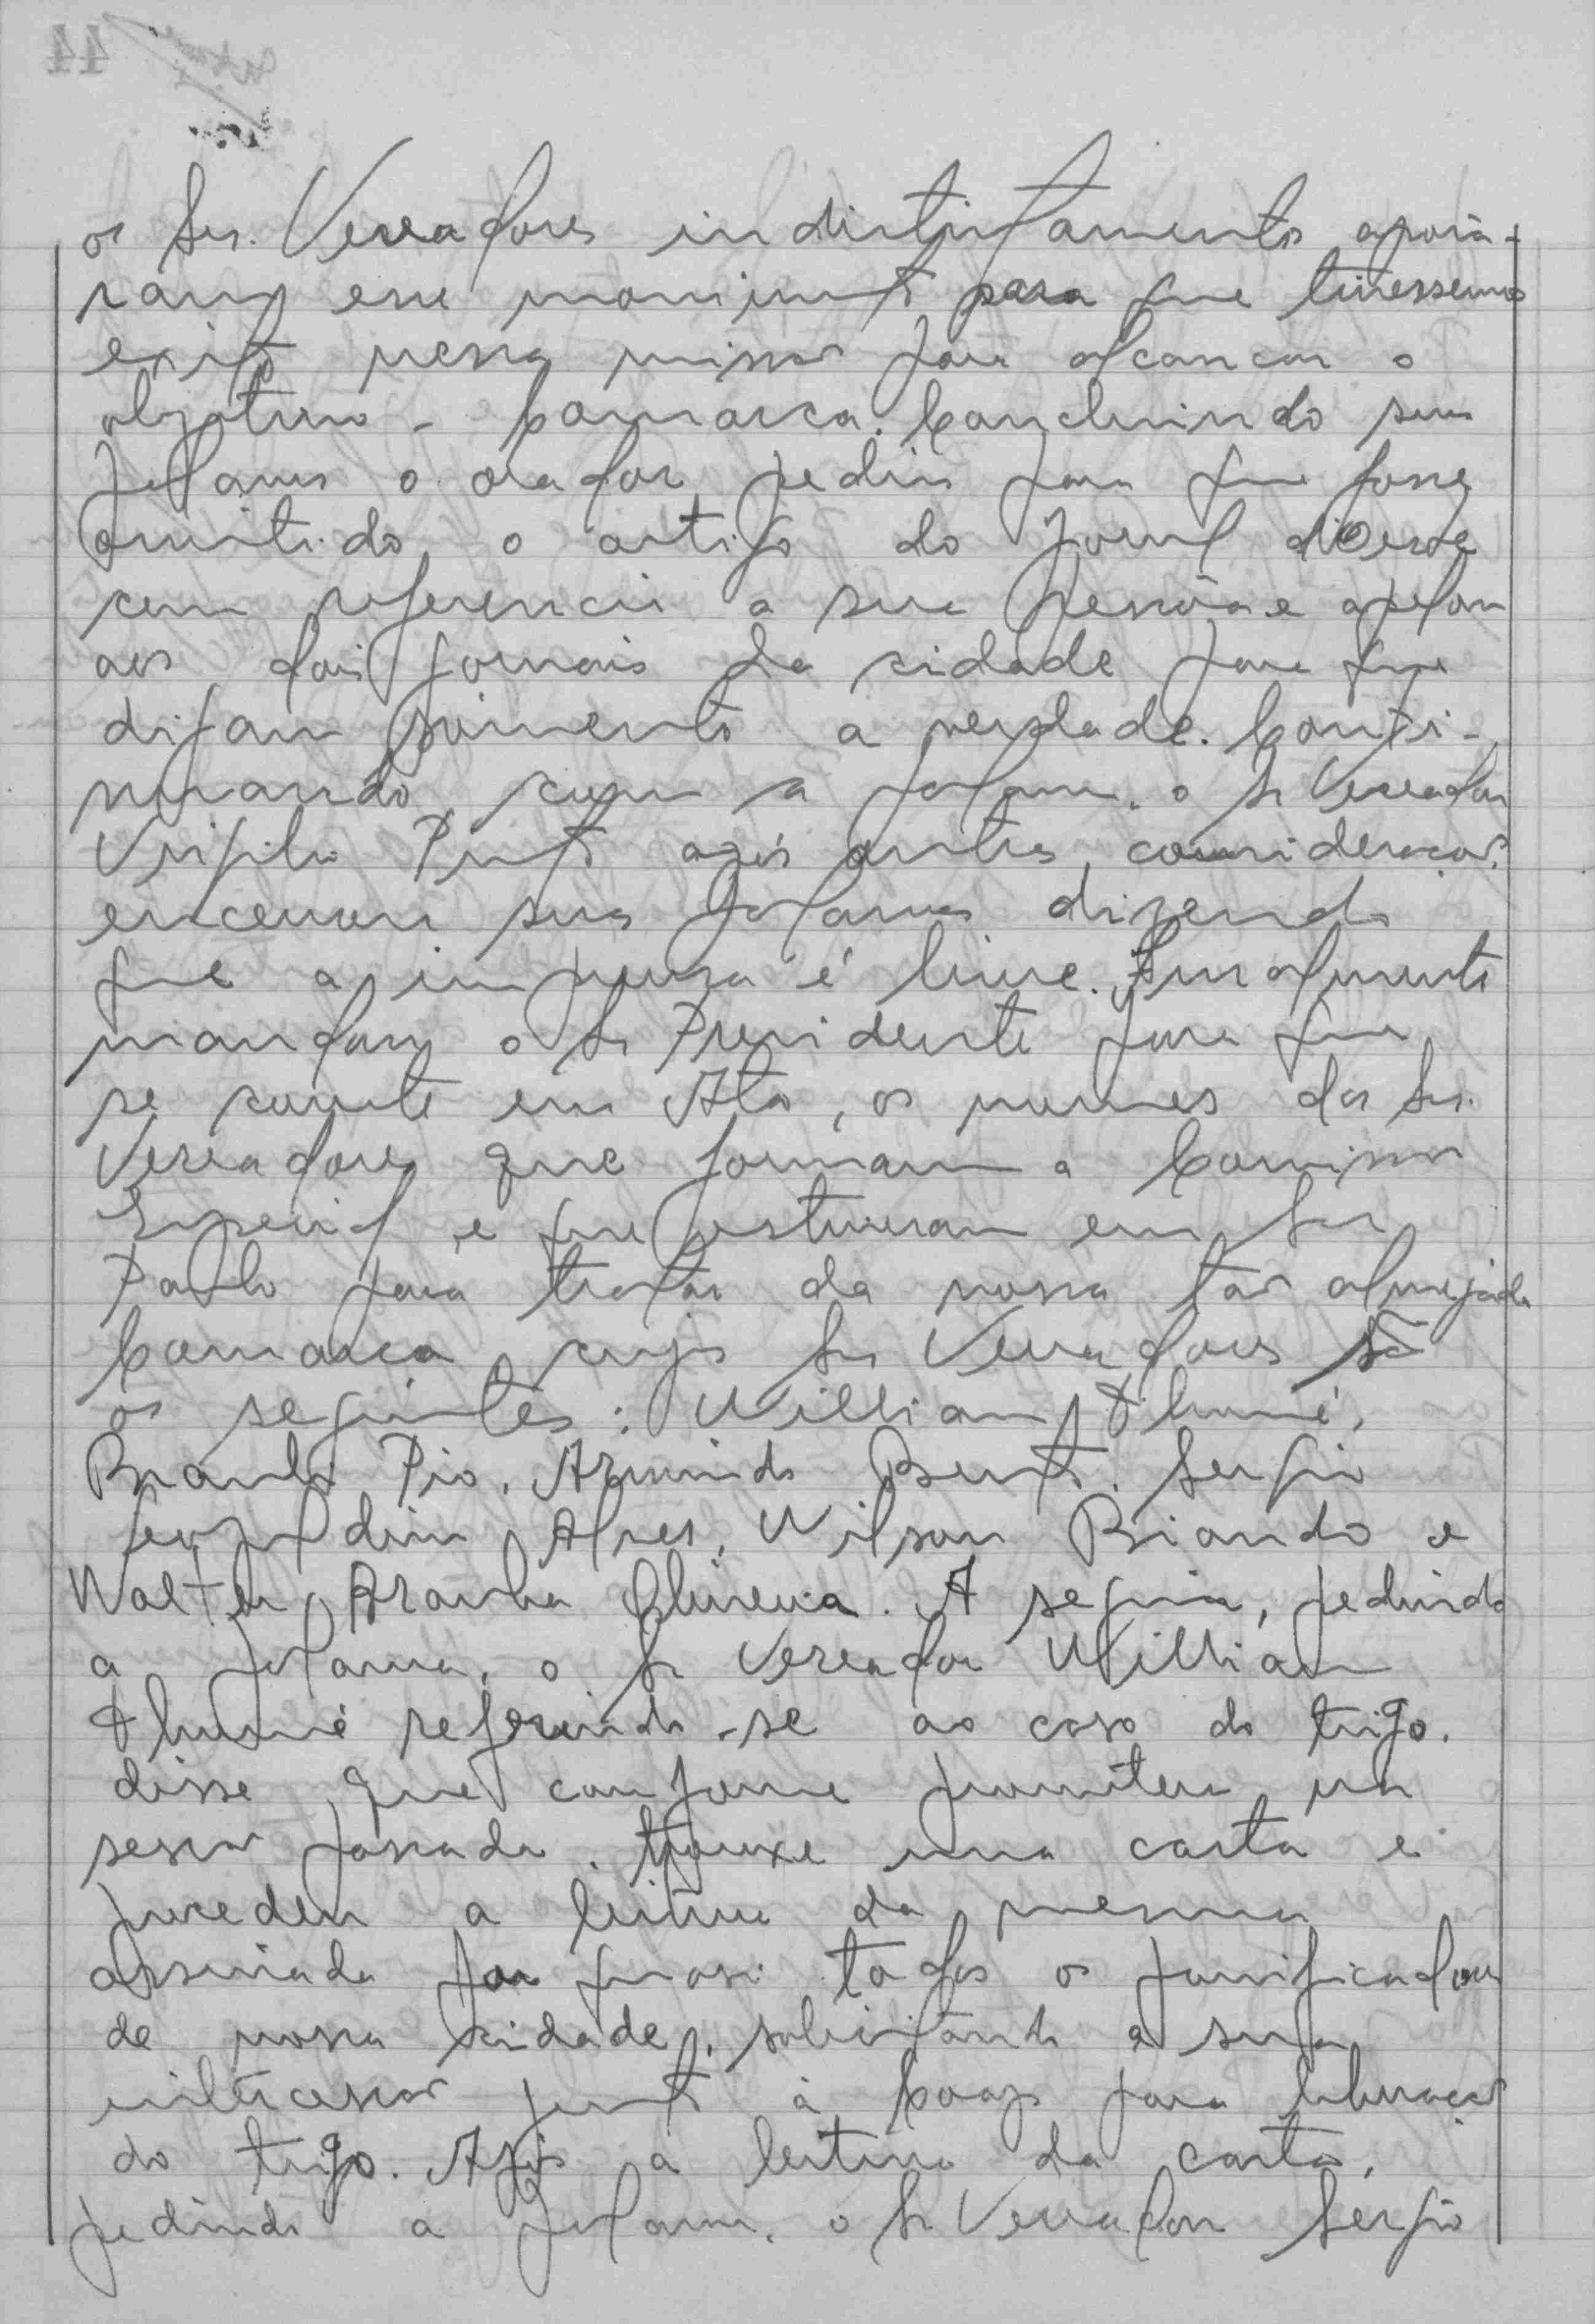 os Srs. Vereadores indistintamente apoia-
ram esse movimento para que tivessemos
exito nessa missão para alcançar o
objetivo - Comarca. Concluindo suas
palavras o orador pediu para que fosse
omitido o artigo do Jornal
com referencia a sua pessôa e apelou
aos dois jornais da cidade para que
digam sómente a verdade. Conti-
nuando com a palavra, o Sr Vereador
Virgilio Pinto após outras considerações
encerrou suas palavras dizendo
que a imprensa é livre. Finalmente
mandou o Sr Presidente para que
se conste em Ata, os nomes dos Srs.
Vereadores que formaram a Comissão
Especial e que estiveram em São
Paulo para tratar da nossa tão almejada
Comarca, cujos Srs Vereadores são
os seguintes: Willian
Braulio Pio, Armindo Bento, Sergio
Leopoldino Alves, Wilson Biando e
Walter Aranha Oliveira. A seguir, pedindo
a palavra, o Sr Vereador Willian
referindo-se ao caso do trigo.
disse que conforme prometeu na
sessão passada. trouxe uma carta e
procedeu a leitura da mesma
assinada por quasi todos os panificadores
de nossa cidade, solicitando a sua
intercessão junto à Coap para liberação
do trigo. Após a leitura da carta,
pedindo a palavra, o Sr Vereador Sergio